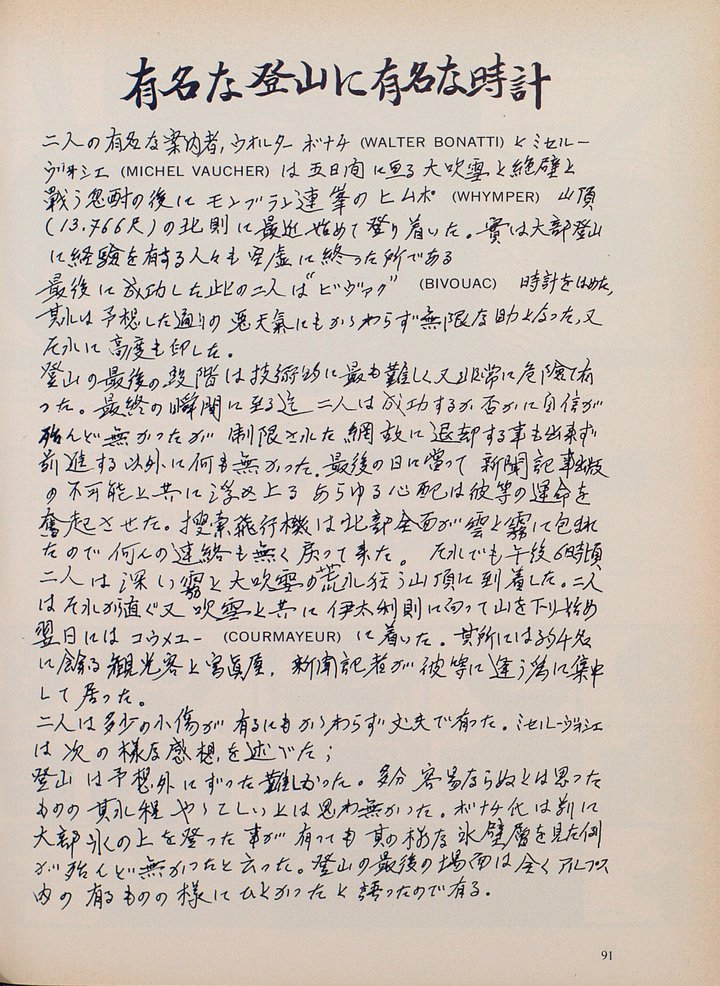 有名な登山に有名な時計
二人の有名な案内者，ウオルター ボナチ (WALTER BONATTI) と ミセルー
ヴォシエ (MICHEL VAUCHER) は 五日間に至る 大吹雪と絶壁と
戦う 後に モンブラン連峯の ヒムポ (WHYMPER) 山頂
(13,766尺) の北側に最近始めて登り着いた。實は大部登山
に経験を有する人々も空虚に終った所である
最後に成功した此の二人は“ビヴァク” (BIVOUAC) 時計をはめた，
其れは予想した通りの悪天氣にもかゝわらず無限な助となった，又
それに高度も印した。
登山の最後の段階は技術的に最も難しく又非常に危險で有
った。最終の瞬間に至る迄 二人は成功するか否かに自信が
殆んど無かったが 制限された綱故に退却する事も出来ず
前進する以外に何も無かった．最後の日に當って 新聞記事出版
の不可能と共に浮び上る あらゆる心配は彼等の運命を
奮起させた。捜索飛行機は北部全面が雲と霧に包まれ
たので何んの連絡も無く戻って来た。それでも午後6時頃
二人は深い霧と大吹雪の荒れ狂う山頂に到着した．二人
はそれから直ぐ又吹雪と共に伊太利側に向って山を下り始め
翌日には コウメユー (COURMAYEUR) に着いた．其所には約千名
に余る観光客と写真屋，新聞記者が彼等に逢う為に集中
して居った。
二人は多少の小傷が有るにもかゝわらず丈夫で有った．ミセルーヴォシエ
は次の様な感想を述べた；
登山は予想外にずっと難しかった。多分 容易ならぬとは思った
ものの 其れ程 やゝこしいとは思わ無かった．ボナチ氏は前に
大部多くの上を登った事が有っても其の様な氷壁層を見た例
が殆んど無かったと云った。登山の最後の場面は全くアルプス
内の有るものの様にひどかったと語ったので有る．
91